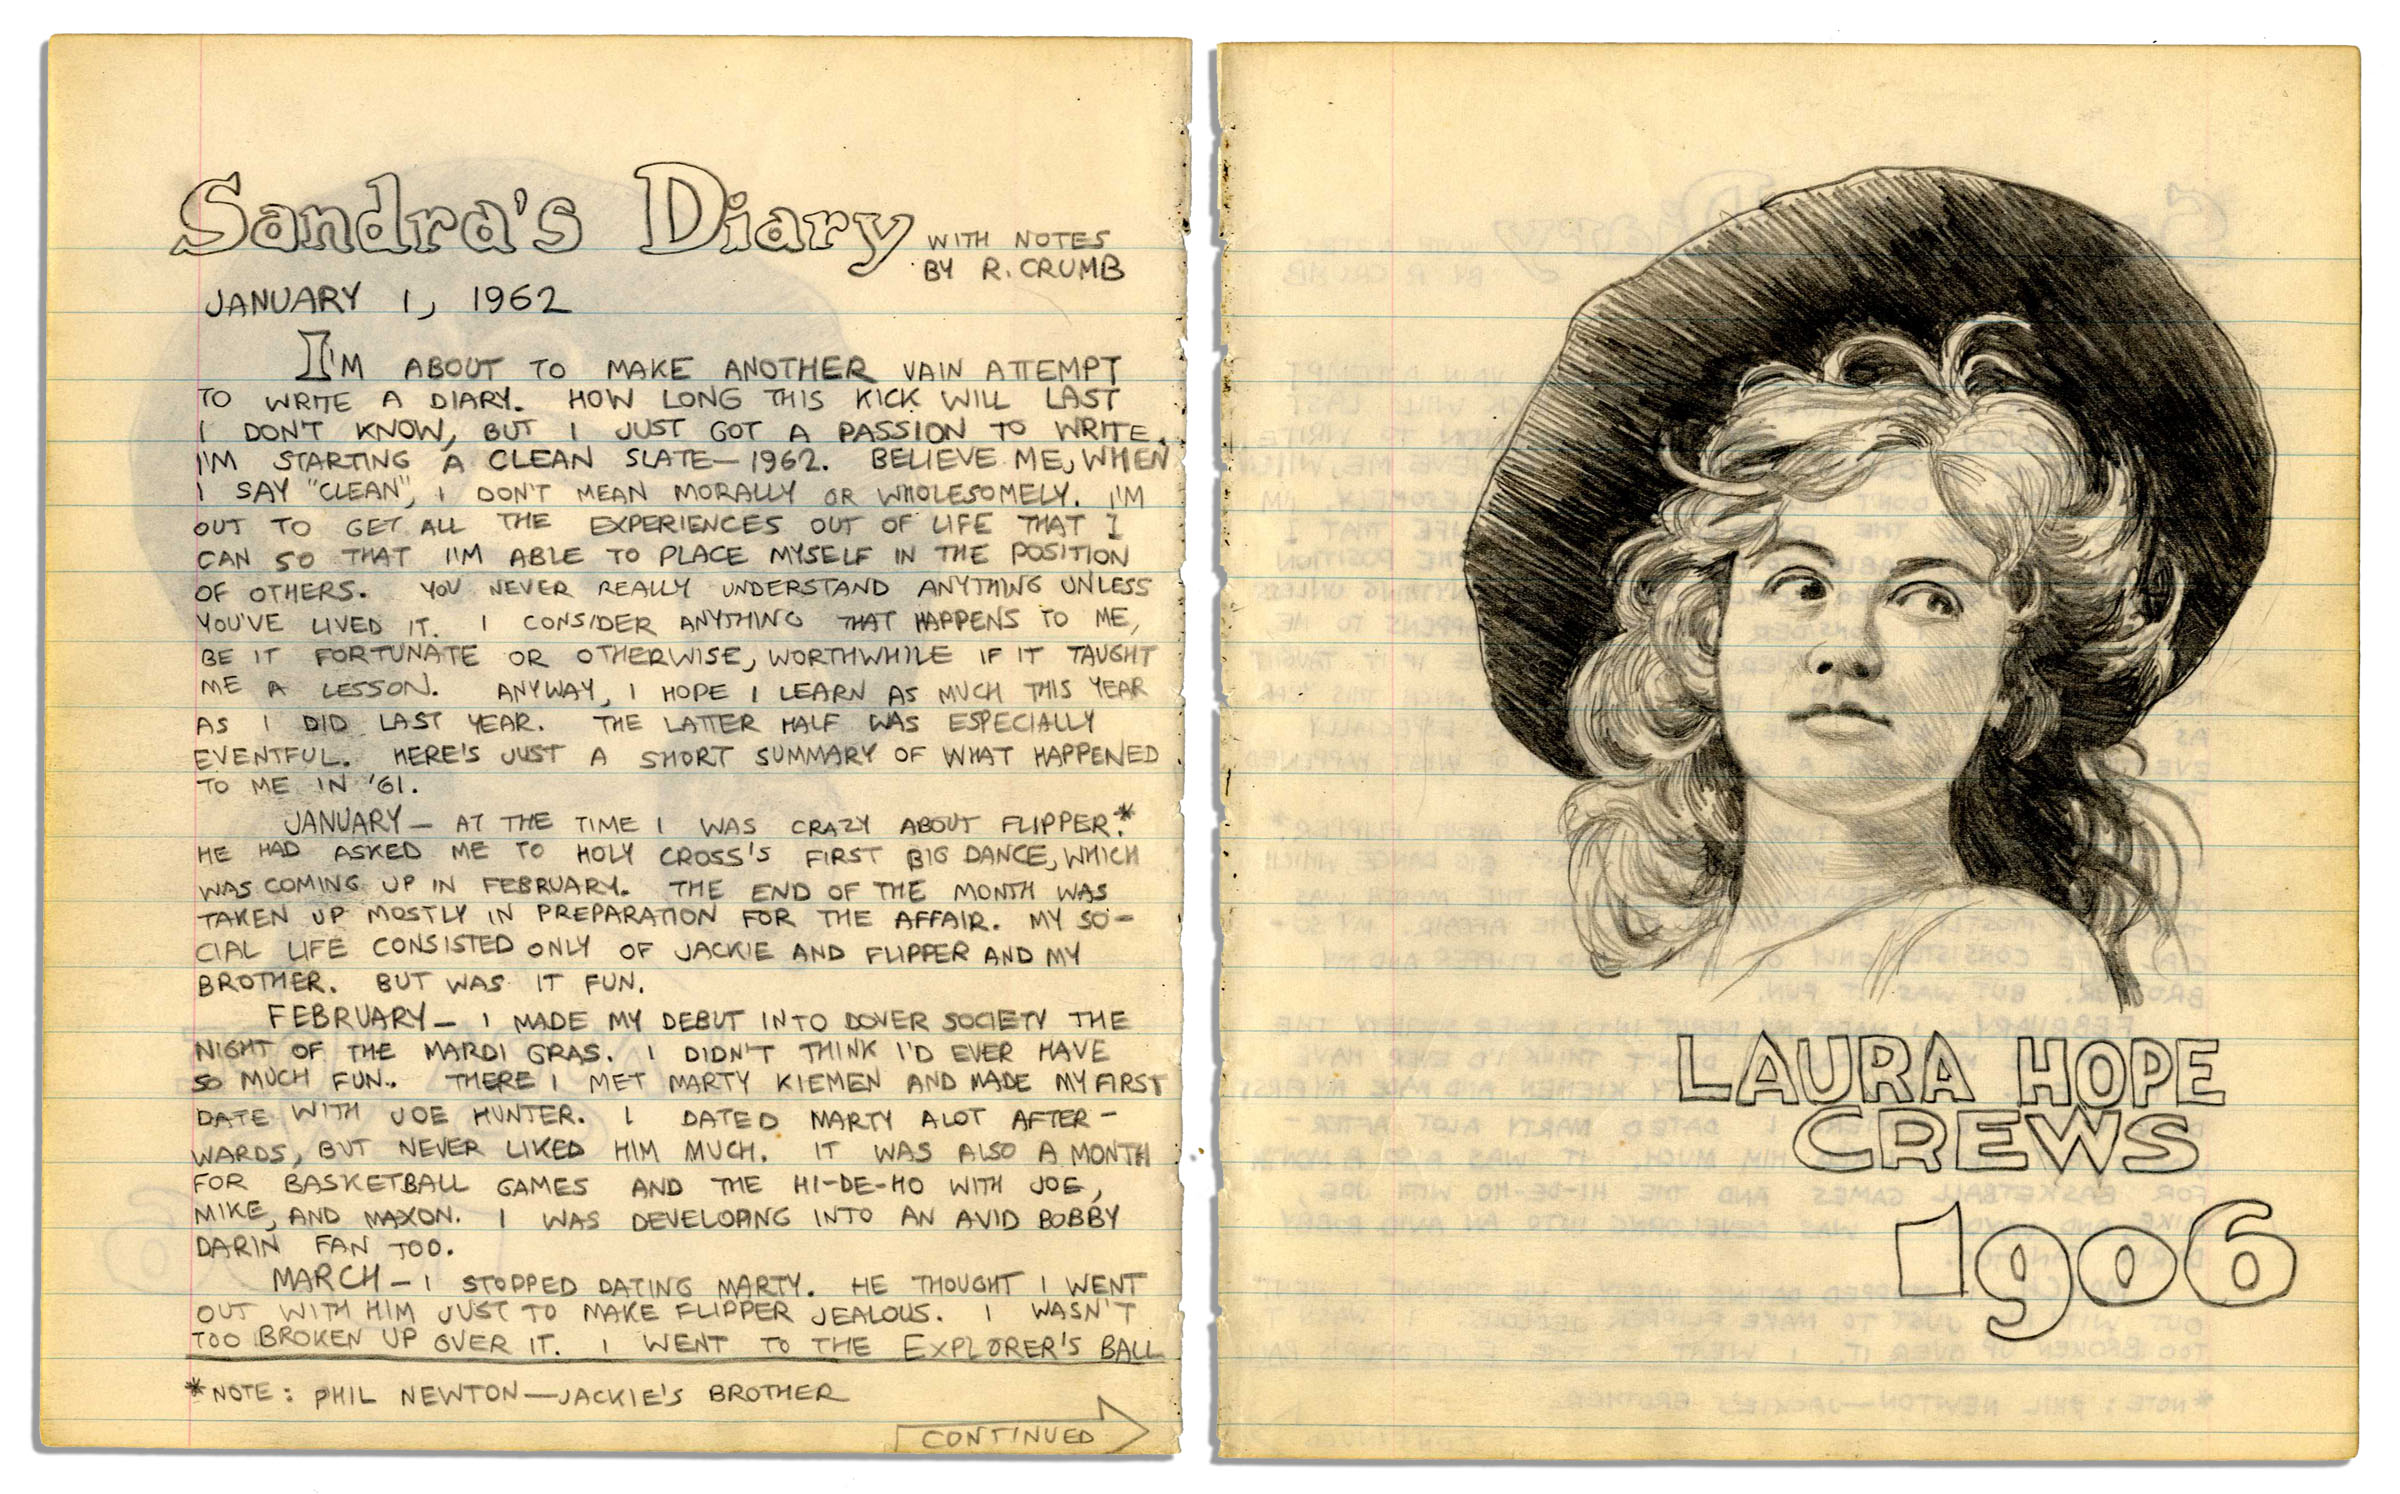 Sandra's Diary WITH NOTES
BY R. CRUMB
JANUARY 1, 1962
I'M ABOUT TO MAKE ANOTHER VAIN ATTEMPT
TO WRITE A DIARY. HOW LONG THIS KICK WILL LAST
I DON'T KNOW, BUT I JUST GOT A PASSION TO WRITE.
I'M STARTING A CLEAN SLATE—1962. BELIEVE ME, WHEN
I SAY "CLEAN", I DON'T MEAN MORALLY OR WHOLESOMELY. I'M
OUT TO GET ALL THE EXPERIENCES OUT OF LIFE THAT I
CAN SO THAT I'M ABLE TO PLACE MYSELF IN THE POSITION
OF OTHERS. YOU NEVER REALLY UNDERSTAND ANYTHING UNLESS
YOU'VE LIVED IT. I CONSIDER ANYTHING THAT HAPPENS TO ME,
BE IT FORTUNATE OR OTHERWISE, WORTHWHILE IF IT TAUGHT
ME A LESSON. ANYWAY, I HOPE I LEARN AS MUCH THIS YEAR
AS I DID LAST YEAR. THE LATTER HALF WAS ESPECIALLY
EVENTFUL. HERE'S JUST A SHORT SUMMARY OF WHAT HAPPENED
TO ME IN '61.
JANUARY — AT THE TIME I WAS CRAZY ABOUT FLIPPER.*
HE HAD ASKED ME TO HOLY CROSS'S FIRST BIG DANCE, WHICH
WAS COMING UP IN FEBRUARY. THE END OF THE MONTH WAS
TAKEN UP MOSTLY IN PREPARATION FOR THE AFFAIR. MY SO-
CIAL LIFE CONSISTED ONLY OF JACKIE AND FLIPPER AND MY
BROTHER. BUT WAS IT FUN.
FEBRUARY — I MADE MY DEBUT INTO DOVER SOCIETY THE
NIGHT OF THE MARDI GRAS. I DIDN'T THINK I'D EVER HAVE
SO MUCH FUN. THERE I MET MARTY KIEMEN AND MADE MY FIRST
DATE WITH JOE HUNTER. I DATED MARTY ALOT AFTER-
WARDS, BUT NEVER LIKED HIM MUCH. IT WAS ALSO A MONTH
FOR BASKETBALL GAMES AND THE HI-DE-HO WITH JOE,
MIKE, AND MAXON. I WAS DEVELOPING INTO AN AVID BOBBY
DARIN FAN TOO.
MARCH — I STOPPED DATING MARTY. HE THOUGHT I WENT
OUT WITH HIM JUST TO MAKE FLIPPER JEALOUS. I WASN'T
TOO BROKEN UP OVER IT. I WENT TO THE EXPLORER'S BALL
*NOTE: PHIL NEWTON—JACKIE'S BROTHER
CONTINUED
LAURA HOPE
CREWS
1906